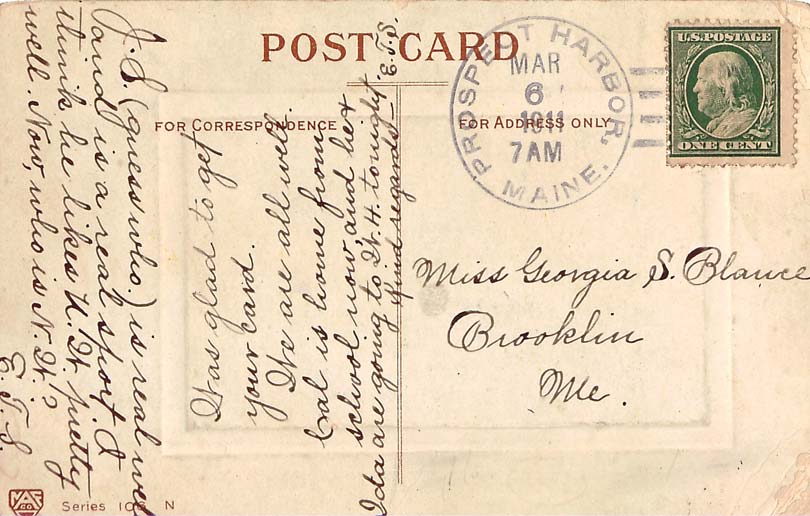 POST CARD
FOR CORRESPONDENCE
FOR ADDRESS ONLY
PROSPECT HARBOR, MAINE.
MAR
6
1911
7AM
U.S. POSTAGE
ONE CENT
Miss Georgia S. Blance
Brooklin
Me.
Was glad to get
your card.
We are all well.
Cal is home from
school now, and her
Ida are going to W. H. tonight
Kind regards
E.T.S.
J. S. (guess who) is real well
and is a real sport. I
think he likes U. W. pretty
well. Now, who is N. W.?
E. T. S.
Series 106 N